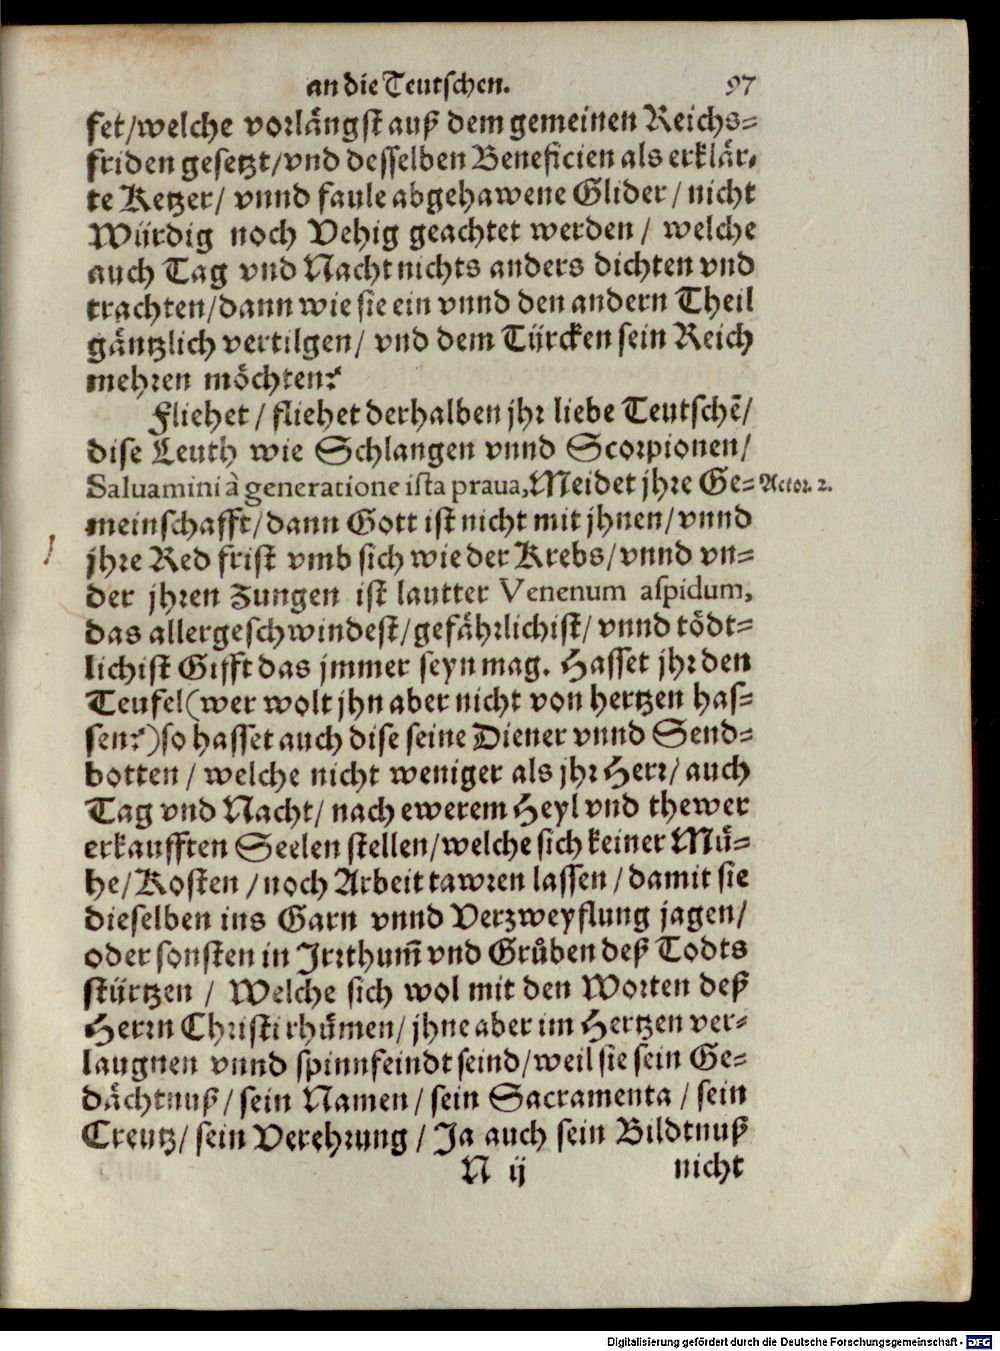 an die Teutschen. 97
fet/welche vorlängst auß dem gemeinen Reichs-
friden gesetzt/vnd desselben Beneficien als erklär-
te Ketzer/ vnnd faule abgehawene Glider/ nicht
Würdig noch Vehig geachtet werden/ welche
auch Tag vnd Nacht nichts anders dichten vnd
trachten/dann wie sie ein vnnd den andern Theil
gäntzlich vertilgen/ vnd dem Türcken sein Reich
mehren möchten?
Fliehet/ fliehet derhalben jhr liebe Teutschẽ/
dise Leuth wie Schlangen vnnd Scorpionen/
Saluamini à generatione ista praua, Meidet jhre Ge- Actor. 2.
meinschafft/dann Gott ist nicht mit jhnen/vnnd
jhre Red frist vmb sich wie der Krebs/vnnd vn-
der jhren Zungen ist lautter Venenum aspidum,
das allergeschwindest/gefährlichist/ vnnd tödt-
lichist Gifft das jmmer seyn mag. Hasset jhr den
Teufel(wer wolt jhn aber nicht von hertzen has-
sen?)so hasset auch dise seine Diener vnnd Send-
botten/ welche nicht weniger als jhr Herr/ auch
Tag vnd Nacht/ nach ewerem Heyl vnd thewer
erkaufften Seelen stellen/welche sich keiner Mü-
he/Kosten/noch Arbeit tawren lassen/damit sie
dieselben ins Garn vnnd Verzweyflung jagen/
oder sonsten in Irrthum̃ vnd Grůben deß Todts
stürtzen/ Welche sich wol mit den Worten deß
Herrn Christi rhümen/ jhne aber im Hertzen ver-
laugnen vnnd spinnfeindt seind/weil sie sein Ge-
dächtnuß/ sein Namen/ sein Sacramenta/ sein
Creutz/ sein Verehrung/ Ja auch sein Bildtnuß
N ij nicht
Digitalisierung gefördert durch die Deutsche Forschungsgemeinschaft - DFG